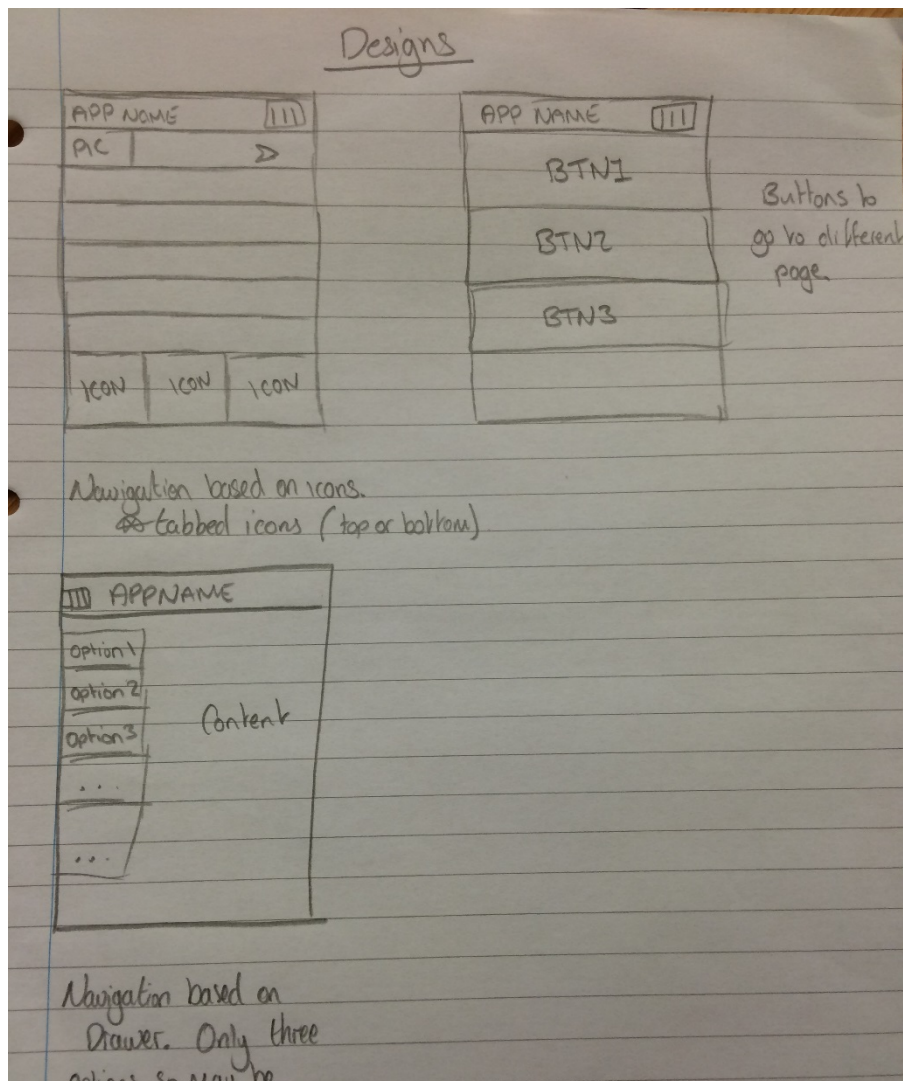 Designs
APP NAME
PIC
ICON ICON ICON
APP NAME
BTN1
BTN2
BTN3
Buttons to
go to different
page.
Navigation based on icons.
tabbed icons (top or bottom)
APPNAME
Option1
Option2
Option3
...
...
Content
Navigation based on
Drawer. Only three
options so may be